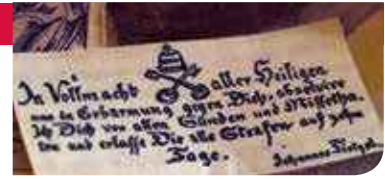 In Vollmacht aller Heiligen
und in Erbarmung gegen Dich, absolvire
Ich Dich von allen Sünden und Missetha-
ten und erlasse Dir alle Strafen auf zehn
Tage.
Johannes Tetzel